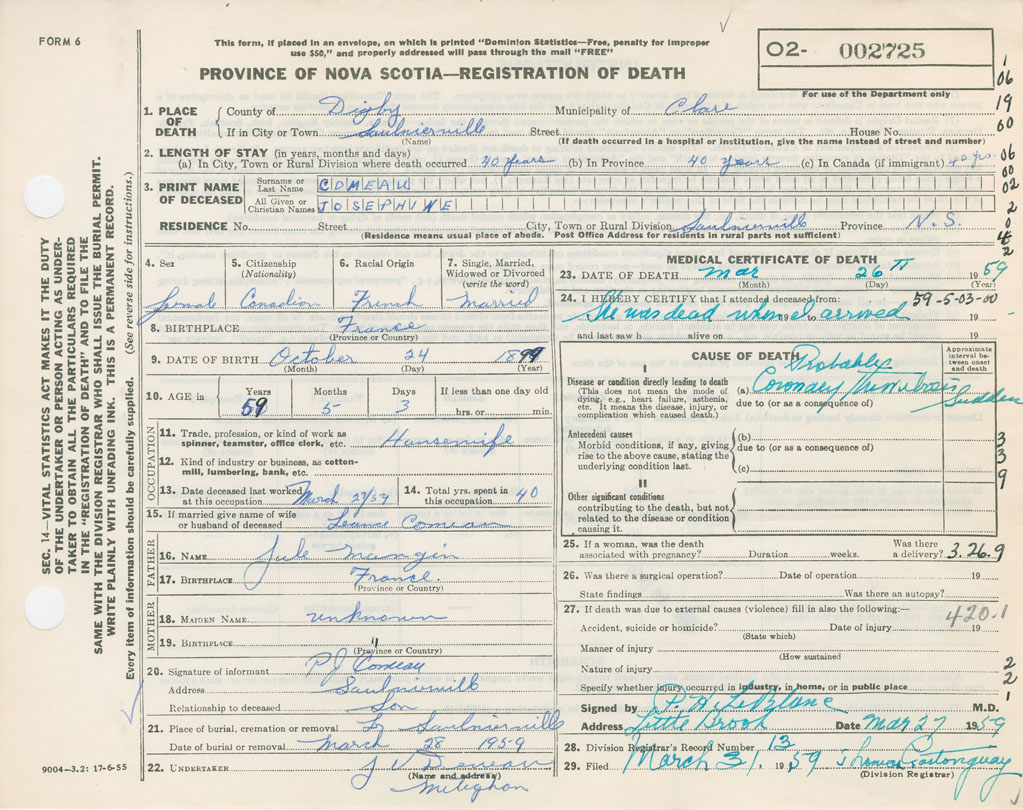 FORM 6
This form, if placed in an envelope, on which is printed "Dominion Statistics—Free, penalty for improper
use $50," and properly addressed will pass through the mail "FREE"
O2- 002725
For use of the Department only
PROVINCE OF NOVA SCOTIA—REGISTRATION OF DEATH
1. PLACE OF DEATH
County of Digby Municipality of Clare
If in City or Town Saulnierville Street House No.
(Name) (If death occurred in a hospital or institution, give the name instead of street and number)
2. LENGTH OF STAY (in years, months and days)
(a) In City, Town or Rural Division where death occurred 40 years (b) In Province 40 years (c) In Canada (if immigrant) 40 yrs.
3. PRINT NAME OF DECEASED
Surname or Last Name COMEAU
All Given or Christian Names JOSEPHINE
RESIDENCE No. Street City, Town or Rural Division Saulnierville Province N.S.
(Residence means usual place of abode. Post Office Address for residents in rural parts not sufficient)
1
06
19
60
06
00
02
2
0
2
4. Sex
Femal
5. Citizenship
(Nationality)
Canadian
6. Racial Origin
French
7. Single, Married,
Widowed or Divorced
(write the word)
Married
8. BIRTHPLACE France
(Province or Country)
9. DATE OF BIRTH October 24 1899
(Month) (Day) (Year)
10. AGE in
Years Months Days If less than one day old
59 5 3 hrs. or min.
OCCUPATION
11. Trade, profession, or kind of work as
spinner, teamster, office clerk, etc. Housewife
12. Kind of industry or business, as cotton-
mill, lumbering, bank, etc.
13. Date deceased last worked
at this occupation March 27/59
14. Total yrs. spent in
this occupation 40
15. If married give name of wife
or husband of deceased Leance Comeau
FATHER
16. NAME Jule Mangin
17. BIRTHPLACE France.
(Province or Country)
MOTHER
18. MAIDEN NAME unknown
19. BIRTHPLACE "
(Province or Country)
20. Signature of informant P J Comeau
Address Saulnierville
Relationship to deceased Son
21. Place of burial, cremation or removal Saulnierville
Date of burial or removal March 28 1959
22. UNDERTAKER J V
(Name and address)
Meteghan
MEDICAL CERTIFICATE OF DEATH
23. DATE OF DEATH Mar 26 TH 1959
(Month) (Day) (Year)
24. I HEREBY CERTIFY that I attended deceased from: 59-5-03-00
She was dead when I arrived 19
and last saw h alive on 19
CAUSE OF DEATH
Approximate
interval be-
tween onset
and death
I
Disease or condition directly leading to death
(This does not mean the mode of
dying, e.g., heart failure, asthenia,
etc. It means the disease, injury, or
complication which caused death.)
Probably
(a) Coronary Thrombosis Sudden
due to (or as a consequence of)
Antecedent causes
Morbid conditions, if any, giving
rise to the above cause, stating the
underlying condition last.
(b)
due to (or as a consequence of)
(c)
3
3
9
II
Other significant conditions
contributing to the death, but not
related to the disease or condition
causing it.
25. If a woman, was the death
associated with pregnancy? Duration weeks. Was there
a delivery? 3.26.9
26. Was there a surgical operation? Date of operation 19
State findings Was there an autopsy?
27. If death was due to external causes (violence) fill in also the following:—
420.1
Accident, suicide or homicide? Date of injury 19
(State which)
Manner of injury
(How sustained
Nature of injury
Specify whether injury occurred in industry, in home, or in public place
2
2
1
Signed by P. H. LeBlanc M.D.
Address Little Brook Date Mar 27 1959
28. Division Registrar's Record Number 13
29. Filed March 31, 1959
(Division Registrar)
SEC. 14—VITAL STATISTICS ACT MAKES IT THE DUTY
OF THE UNDERTAKER OR PERSON ACTING AS UNDER-
TAKER TO OBTAIN ALL THE PARTICULARS REQUIRED
IN THE "REGISTRATION OF DEATH" AND TO FILE THE
SAME WITH THE DIVISION REGISTRAR WHO SHALL ISSUE THE BURIAL PERMIT.
WRITE PLAINLY WITH UNFADING INK. THIS IS A PERMANENT RECORD.
Every item of information should be carefully supplied. (See reverse side for instructions.)
9004-3.2: 17-6-55